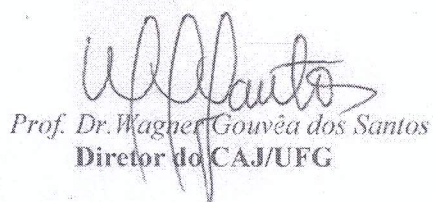 Prof. Dr. Wagner Gouvêa dos Santos
Diretor do CAJ/UFG